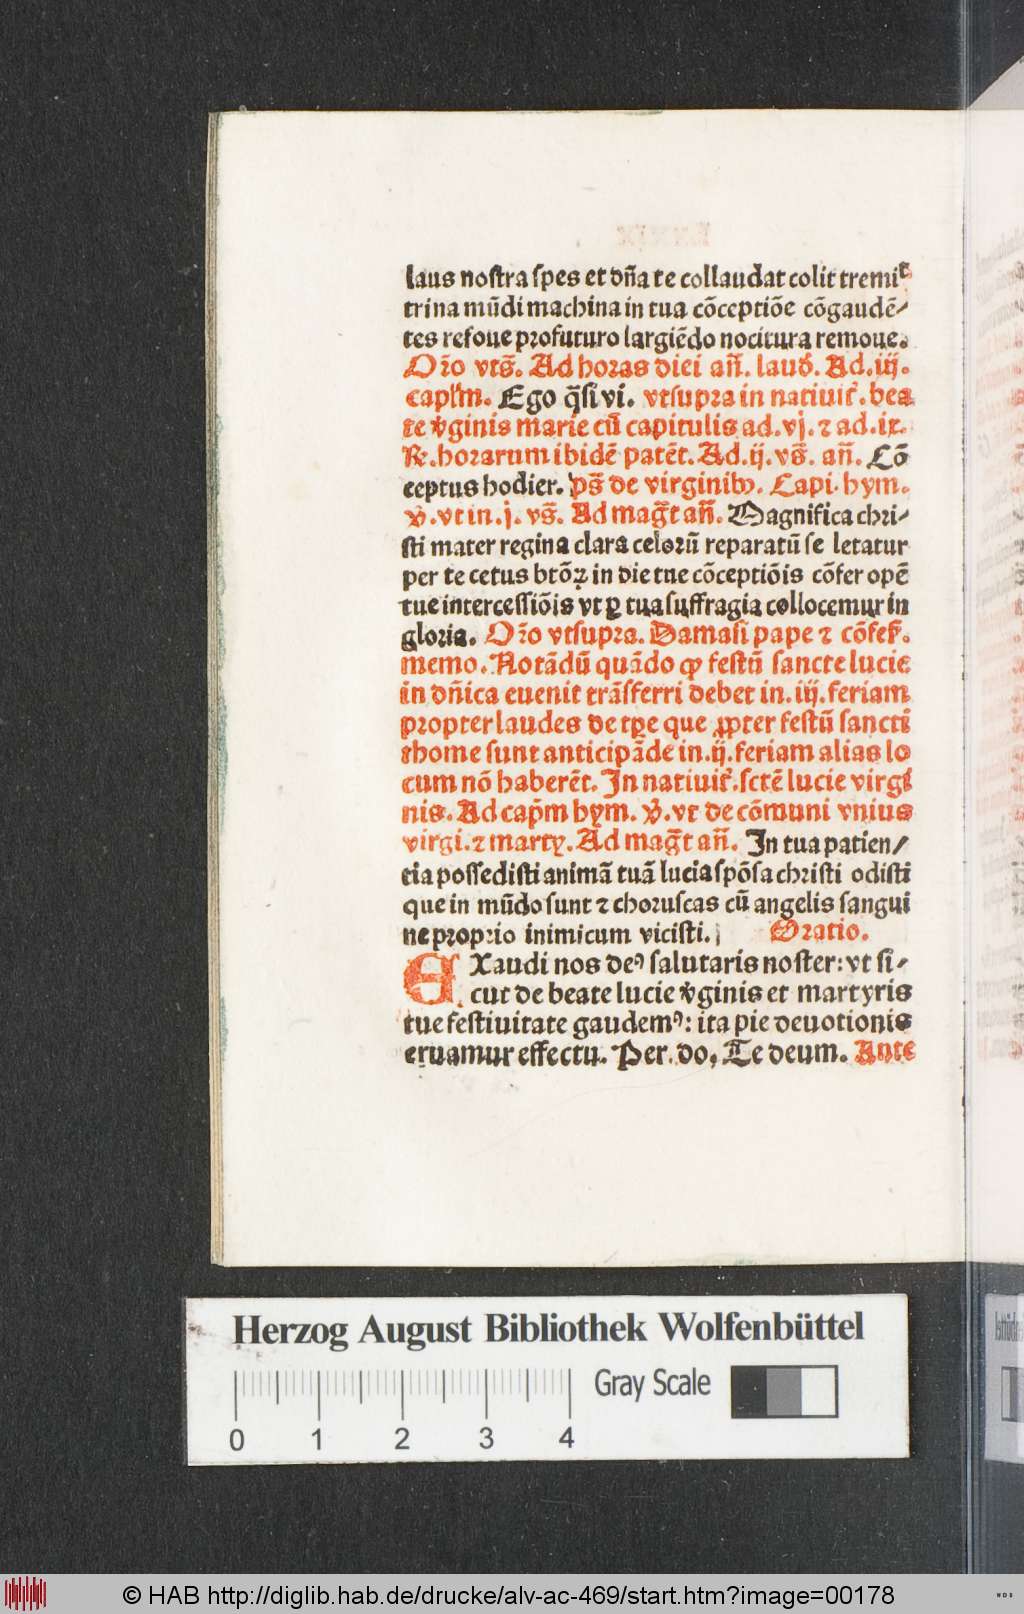 laus nostra spes et dña te collaudat colit tremit
trina mūdi machina in tua cōceptiōe cōgaudē⸗
tes refoue profuturo largiēdo nocitura remoue.
Oro vts̄. Ad horas diei añ. laud. Ad .iij.
capłm. Ego q̄si vi. vtsupra in natiuit. bea
te v̓ginis marie cū capitulis ad .vj. ⁊ ad .ix.
℟. horarum ibidē patēt. Ad .ij. vs̄. añ. Cō
ceptus hodier. ps̄ de virginibꝰ. Capi. hym.
℣. vt in .j. vs̄. Ad mag̅t añ. Magnifica chri⸗
sti mater regina clara celorū reparatū se letatur
per te cetus btōꝝ in die tue cōceptiōis cōfer opē
tue intercessiōis vt ꝑ tua suffragia collocemur in
gloria. Oro vtsupra. Damasi pape ⁊ cōfes.
memo. Notādū quādo ꝙ festū sancte lucie
in dñica euenit trāsferri debet in .iij. feriam
propter laudes de tꝑe que ꝓpter festū sancti
thome sunt anticipāde in .ij. feriam alias lo
cum nō haberēt. In natiuit. sctē lucie virgi
nis. Ad cap̄m hym. ℣. vt de cōmuni vnius
virgi. ⁊ marty. Ad mag̅t añ. In tua patien⸗
tia possedisti animā tuā lucia spōsa christi odisti
que in mūdo sunt ⁊ choruscas cū angelis sangui
ne proprio inimicum vicisti. Oratio.
EXaudi nos deꝰ salutaris noster: vt si⸗
cut de beate lucie v̓ginis et martyris
tue festiuitate gaudemꝰ: ita pie deuotionis
eruamur effectu. Per. do, Te deum. Ante
Herzog August Bibliothek Wolfenbüttel
Gray Scale
0 1 2 3 4
© HAB http://diglib.hab.de/drucke/alv-ac-469/start.htm?image=00178